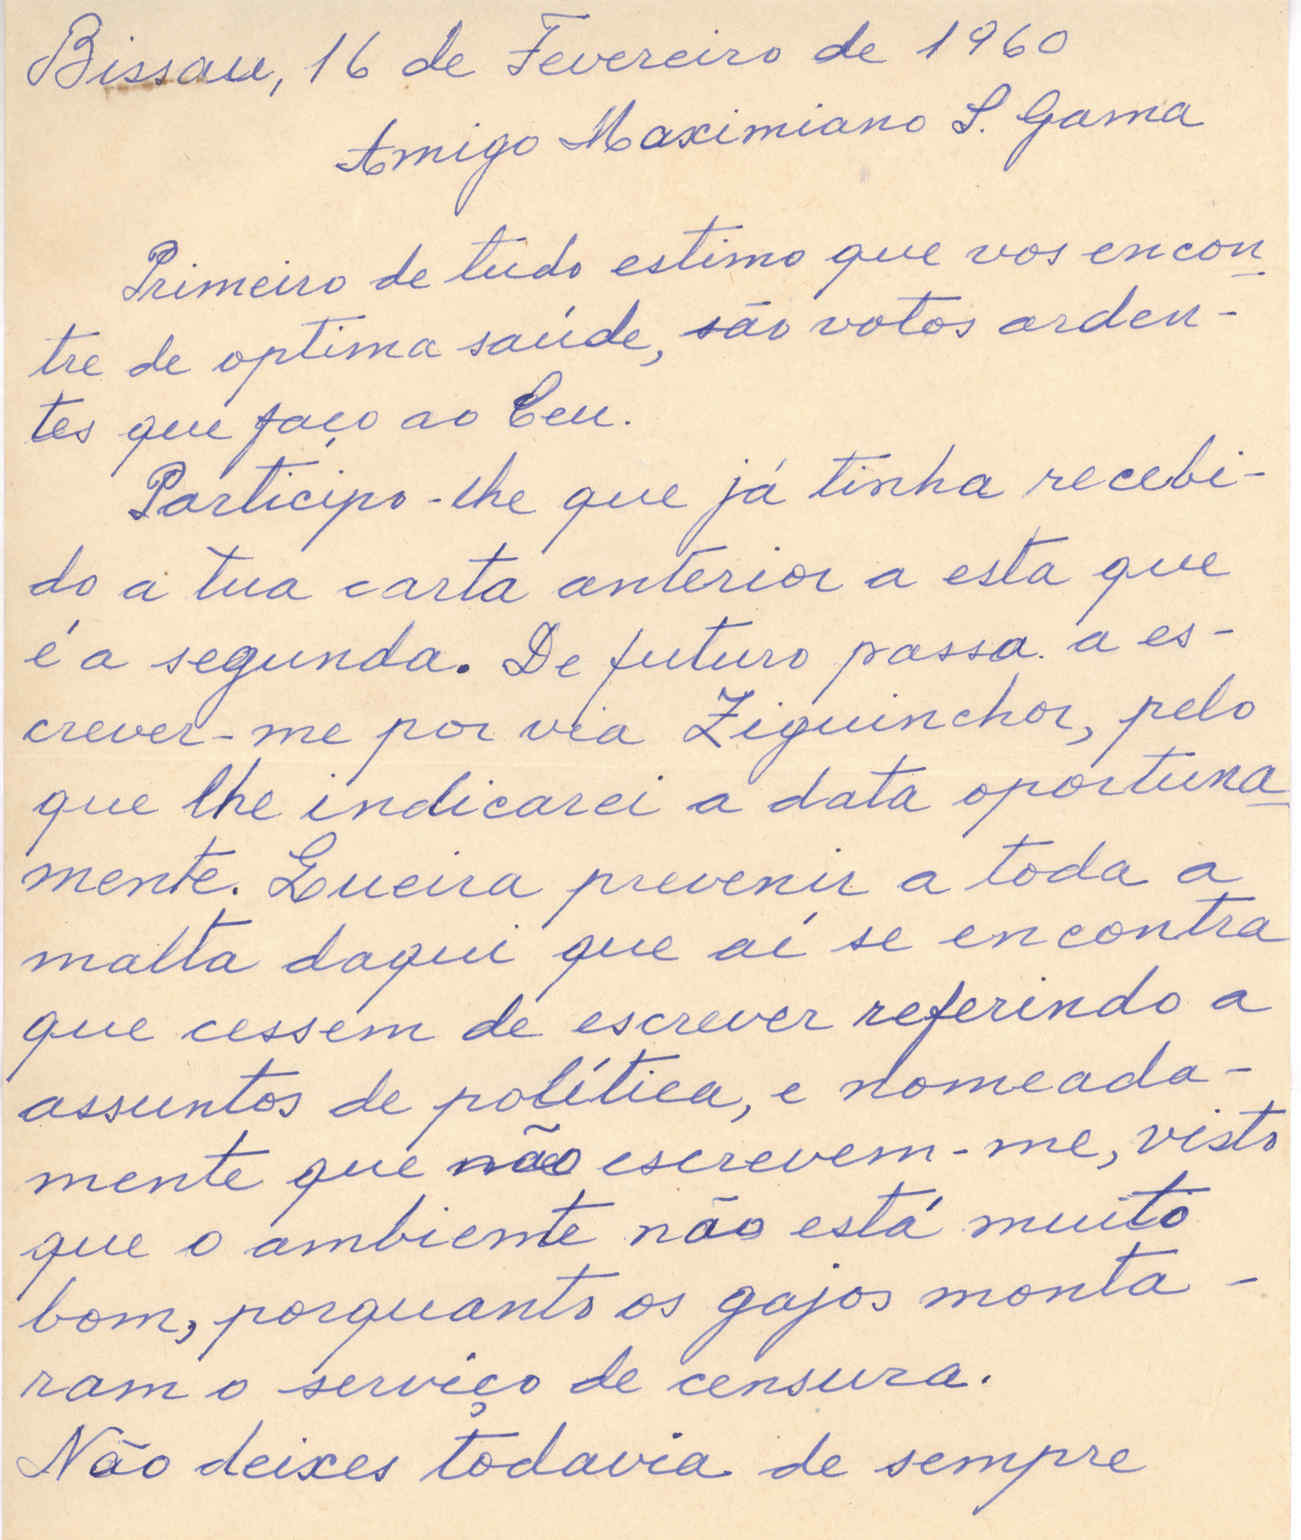 Bissau, 16 de Fevereiro de 1960
Amigo Maximiano S. Gama
Primeiro de tudo estimo que vos encon
tre de optima saúde, são votos arden-
tes que faço ao Ceu.
Participo-lhe que já tinha recebi-
do a tua carta anterior a esta que
é a segunda. De futuro passa a es-
crever-me por via Ziguinchor, pelo
que lhe indicarei a data oportuna
mente. Queira prevenir a toda a
malta daqui que aí se encontra
que cessem de escrever referindo a
assuntos de política, e nomeada-
mente que não escrevem-me, visto
que o ambiente não está muito
bom, porquanto os gajos monta-
ram o serviço de censura.
Não deixes todavia de sempre